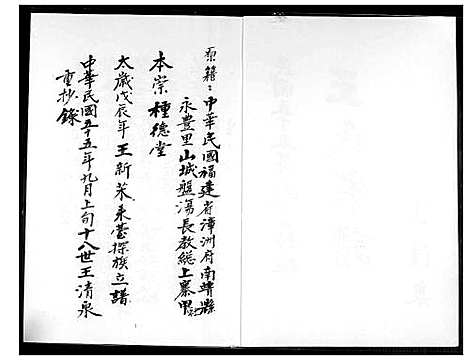 原籍：中華民國福建省漳洲府南靖縣
永豊里山城盤湯長教総上寨甲
本崇種德堂
太歲戊辰年王新萊來臺探族立譜
中華民國五十五年九月上旬十八世王清泉
重抄錄